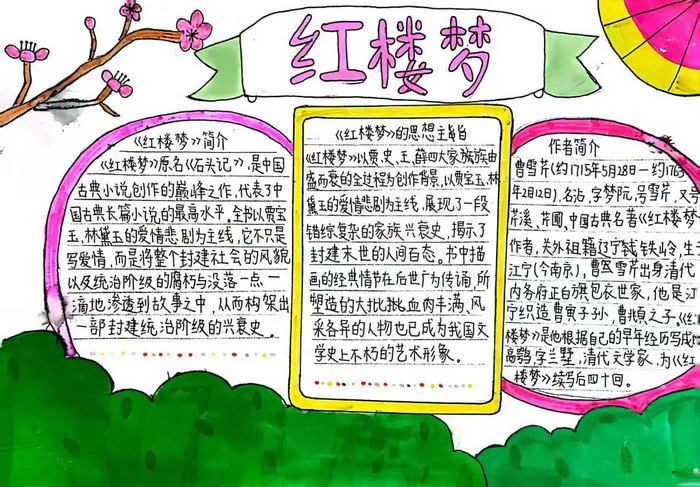 红楼梦
《红楼梦》简介
《红楼梦》原名《石头记》,是中国
古典小说创作的巅峰之作,代表了中
国古典长篇小说的最高水平。全书以贾宝
玉、林黛玉的爱情悲剧为主线,它不只是
写爱情,而是将整个封建社会的风貌
以及统治阶级的腐朽与没落一点一
滴地渗透到故事之中,从而构架出
一部封建统治阶级的兴衰史。
《红楼梦》的思想主旨
《红楼梦》以贾,史,王,薛四大家族族由
盛而衰的全过程为创作背景,以贾宝玉,林
黛玉的爱情悲剧为主线,展现了一段
错综复杂的家族兴衰史,揭示了
封建末世的人间百态。书中描
画的经典情节在后世广为传诵,所
塑造的大批批血肉丰满、风
采各异的人物也已成为我国文
学史上不朽的艺术形象。
作者简介
曹雪芹(约1715年5月28日一约1763
年2月12日),名沾,字梦阮,号雪芹,又号
芹溪、芹圃,中国古典名著《红楼梦》
作者,关外祖籍辽宁铁岭,生于
江宁(今南京),曹雪芹出身清代
内务府正白旗包衣世家,他是江
宁织造曹寅子孙,曹頫之子《红
楼梦》是他根据自己的早年经历写成
高鹗,字兰墅,清代文学家,为《红
楼梦》续写后四十回。